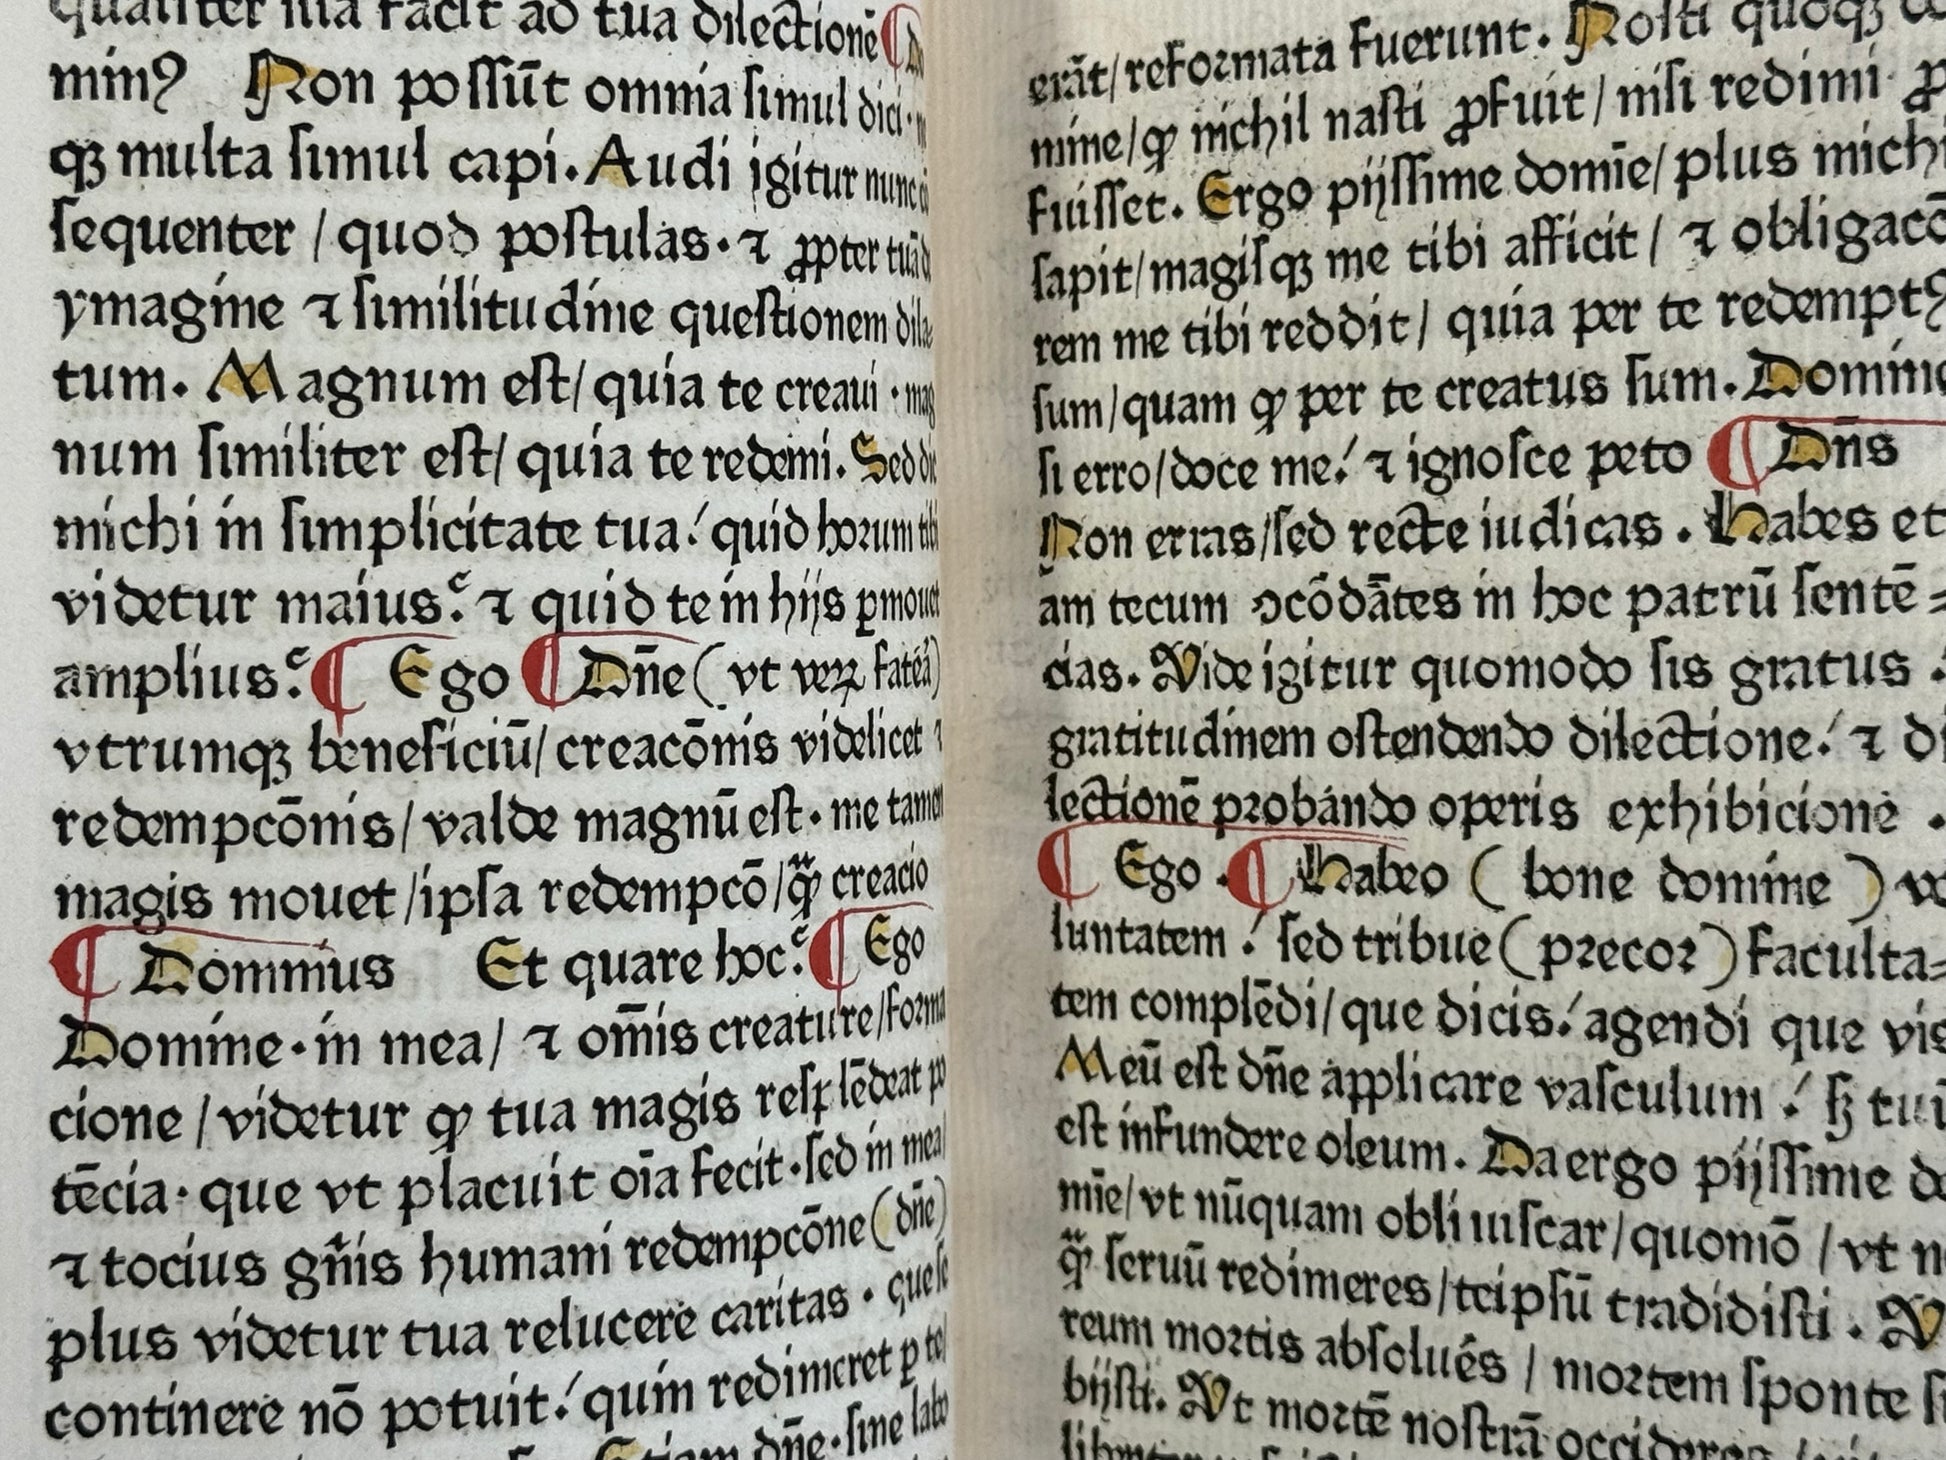 qualiter illa facit ad tua dilectionē
minꝯ Non possūt omnia simul dici·
qꝫ multa simul capi. Audi igitur nunc
sequenter / quod postulas· ⁊ ꝓpter tuā
ymagine ⁊ similitudine questionem
tum. Magnum est/ quia te creaui ·
num similiter est/ quia te redemi. Sed
michi in simplicitate tua! quid horum tibi
videtur maius? ⁊ quid te in hijs ꝑmouet
amplius? ¶ Ego ¶ Dn̄e ( vt veꝝ fateā)
vtrumqꝫ beneficiū/ creacōnis videlicet ⁊
redempcōnis/ valde magnū est· me tamen
magis mouet /ipsa redempcō/ creacio
¶ Dominus Et quare hoc? ¶ Ego
Domine· in mea/ ⁊ om̄is creature/forma
cione /videtur ꝙ tua magis resplēdeat po
tēcia· que vt placuit oīa fecit· sed in mea
⁊ tocius gn̄is humani redempcōne (dn̄e)
plus videtur tua relucere caritas · que se
continere nō potuit! quin redimeret ꝑ te
Etiam dn̄e· sine labo
erāt/ reformata fuerunt. Nosti quoqꝫ
mine/ ꝙ nichil nasti ꝓfuit/ nisi redimi
fuisset. Ergo pijssime domīe/ plus michi
sapit/ magisqꝫ me tibi afficit/ ⁊ obligacō
rem me tibi reddit/ quia per te redemptꝯ
sum/ quam ꝙ per te creatus sum. Domine
si erro/ doce me! ⁊ ignosce peto ¶ Dn̄s
Non erras/ sed recte iudicas . Habes et
am tecum ꝯcōdātes in hoc patrū sentē=
cias. Vide igitur quomodo sis gratus :
gratitudinem ostendendo dilectione! ⁊ di
lectionē probando operis exhibicione .
¶ Ego . ¶ Habeo ( bone domine ) vo
luntatem ! sed tribue (precor) faculta=
tem complēdi/ que dicis! agendi que vis
Meū est dn̄e applicare vasculum ! sꝫ tui
est infundere oleum. Da ergo pijssime do
mīe/ vt nūquam obliuiscar/ quomō / vt
seruū redimeres/ teipsū tradidisti .
reum mortis absolués / mortem sponte
bijsti. Vt mortē nostrā occideres